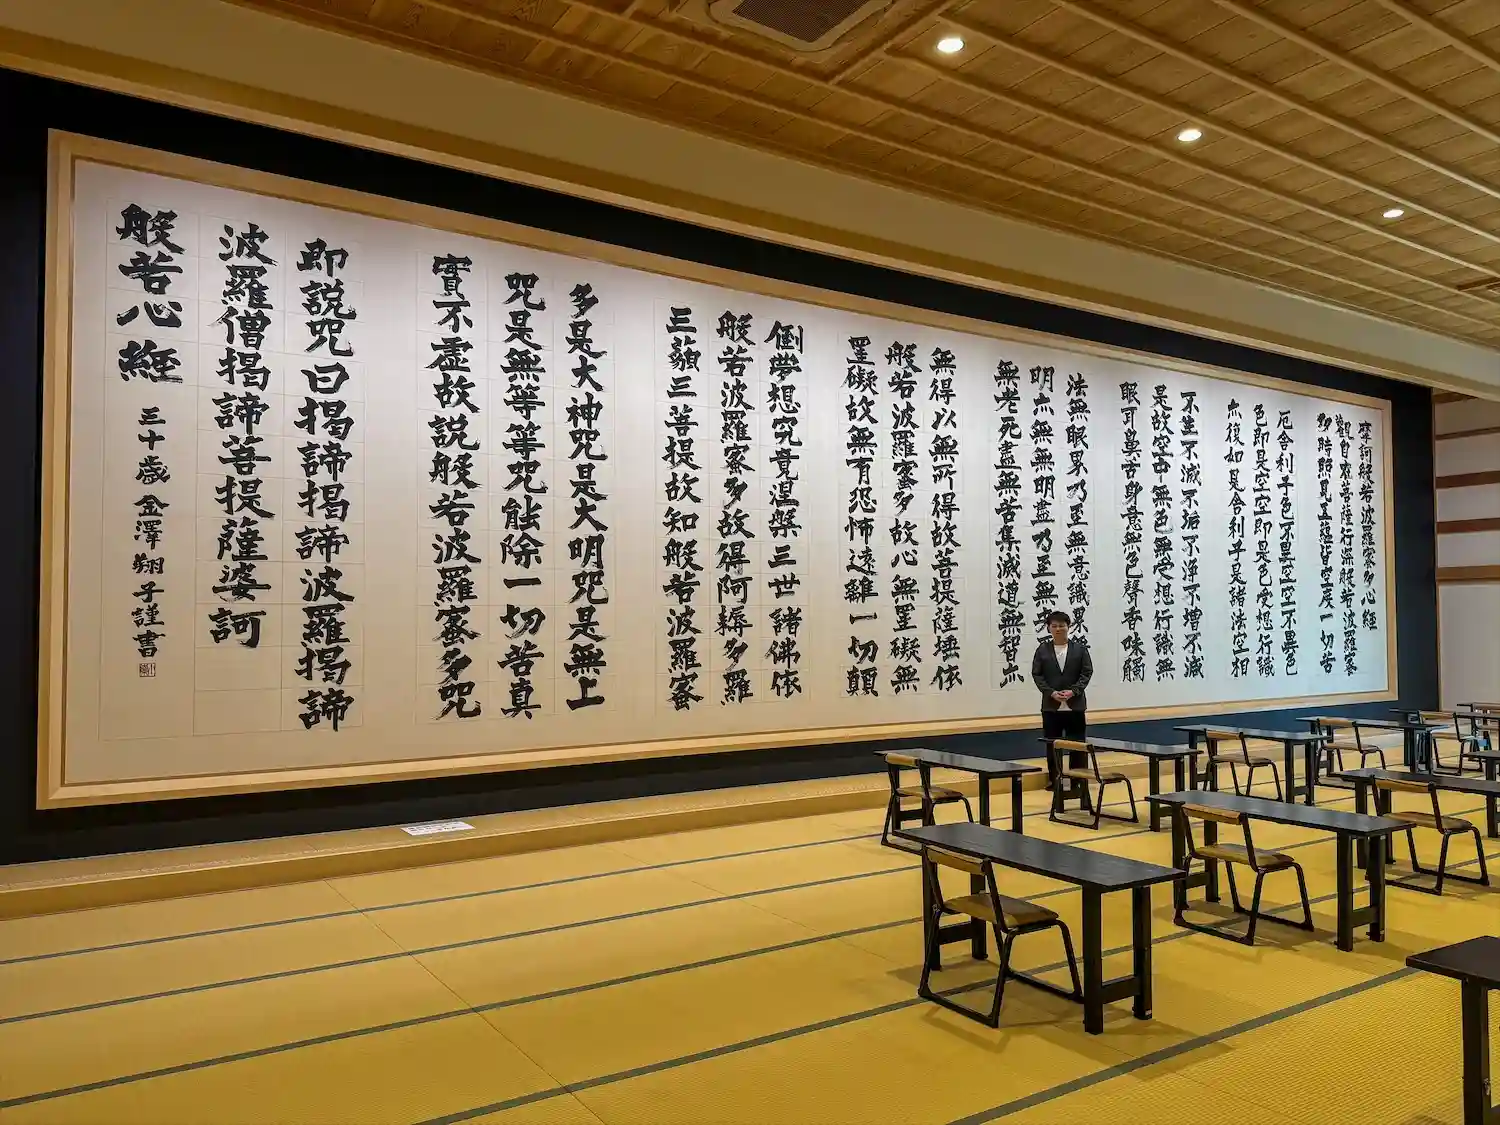 摩訶般若波羅蜜多心経
觀自在菩薩行深般若波羅蜜
多時照見五蘊皆空度一切苦
厄舎利子色不異空空不異色
色即是空空即是色受想行識
亦復如是舎利子是諸法空相
不生不滅不垢不浄不増不減
是故空中無色無受想行識無
眼耳鼻舌身意無色聲香味觸
法無眼界乃至無意識界無
明亦無無明盡乃至無老
無老死盡無苦集滅道無智亦
無得以無所得故菩提薩埵依
般若波羅蜜多故心無罣礙無
罣礙故無有恐怖遠離一切顛
倒夢想究竟涅槃三世諸佛依
般若波羅蜜多故得阿耨多羅
三藐三菩提故知般若波羅蜜
多是大神咒是大明咒是無上
咒是無等等咒能除一切苦真
實不虚故説般若波羅蜜多咒
即説咒曰揭諦揭諦波羅揭諦
波羅僧揭諦菩提薩婆訶
般若心経
三十歳 金澤翔子謹書